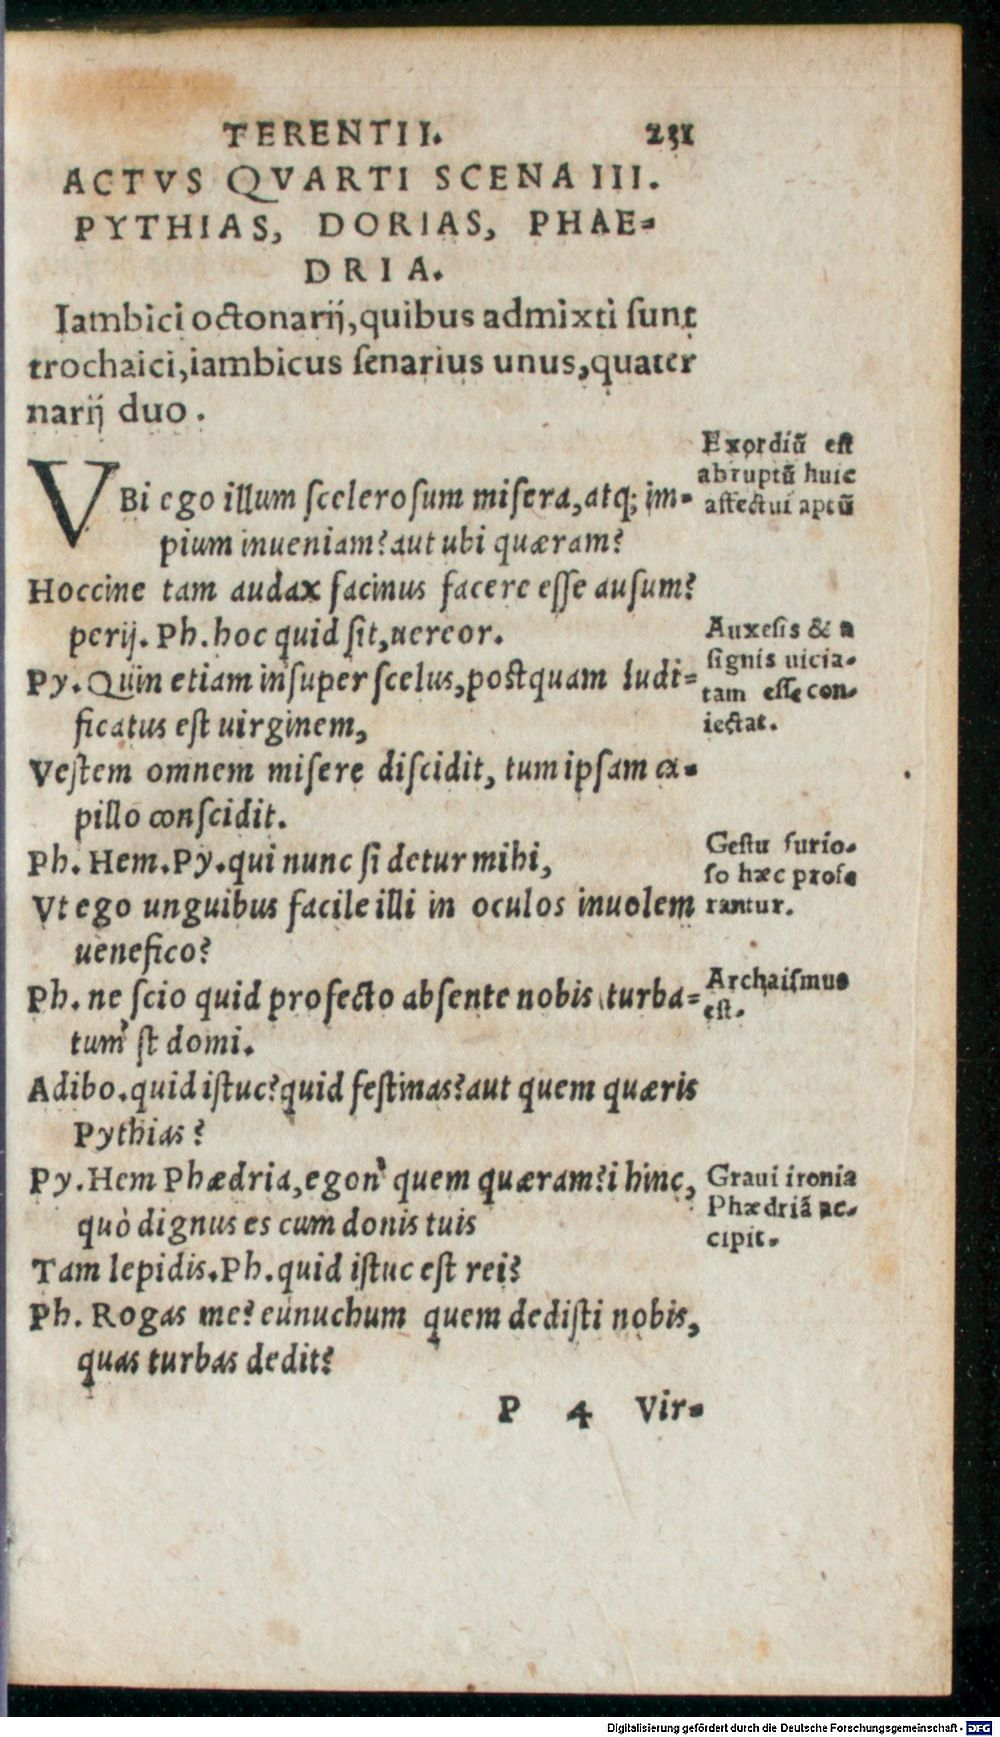 TERENTII. 231
ACTVS QVARTI SCENA III.
PYTHIAS, DORIAS, PHAE=
DRIA.
Iambici octonarij, quibus admixti sunt
trochaici, iambicus senarius unus, quater
narij duo.
VBi ego illum scelerosum misera, atq; im-
pium inueniam? aut ubi quæram?
Hoccine tam audax facinus facere esse ausum?
perij. Ph. hoc quid sit, uereor.
Py. Quin etiam insuper scelus, postquam ludi=
ficatus est uirginem,
Vestem omnem misere discidit, tum ipsam ca-
pillo conscidit.
Ph. Hem. Py. qui nunc si detur mihi,
Vt ego unguibus facile illi in oculos inuolem
uenefico?
Ph. ne scio quid profecto absente nobis turba=
tum' st domi.
Adibo. quid istuc? quid festinas? aut quem quæris
Pythias?
Py. Hem Phædria, egon' quem quæram? i hinc,
quò dignus es cum donis tuis
Tam lepidis. Ph. quid istuc est rei?
Ph. Rogas me? eunuchum quem dedisti nobis,
quas turbas dedit?
P 4 Vir-
Exordiũ est
abruptũ huic
affectui aptũ
Auxesis & a
signis uicia-
tam esse con-
iectat.
Gestu furio-
so hæc profe
rantur.
Archaismus
est.
Graui ironia
Phædriã ac-
cipit.
Digitalisierung gefördert durch die Deutsche Forschungsgemeinschaft - DFG